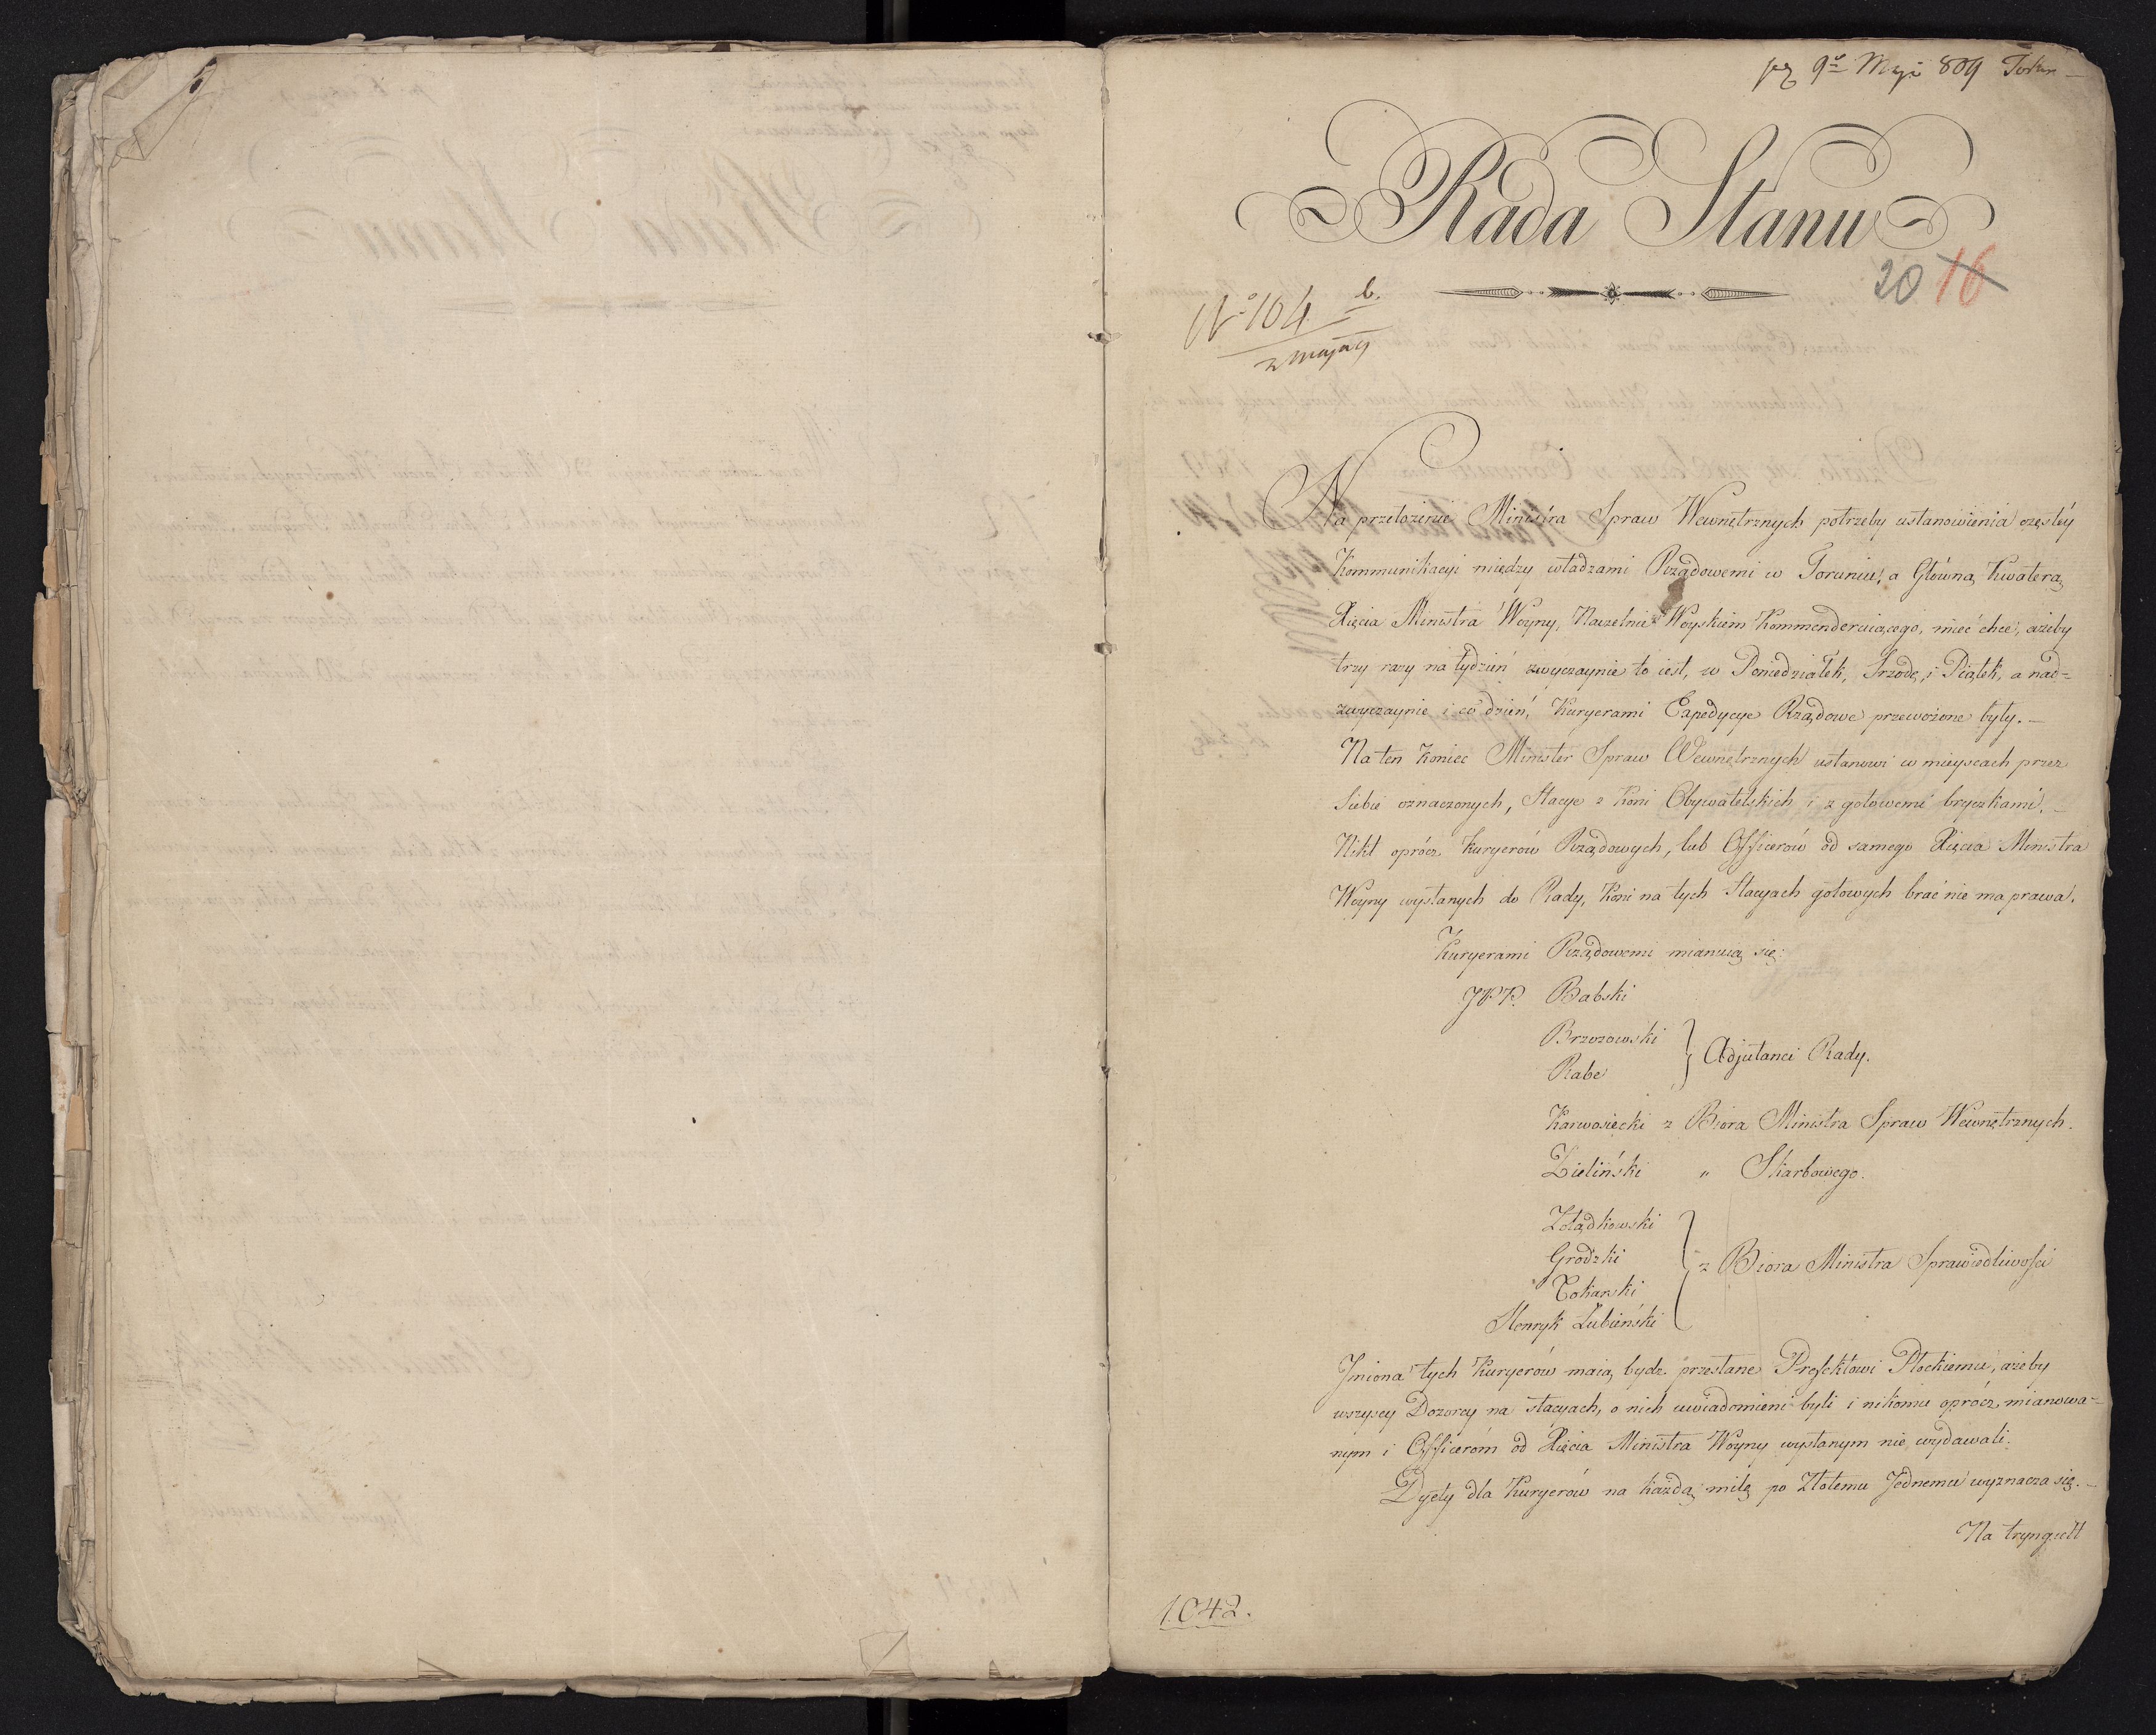 9º Maji 809 Torun
Rada Stanu
20 16
Nº 104 b.
Na przełożenie Ministra Spraw Wewnętrznych potrzeby ustanowienia częstéy
Kommunikacyi między władzami Rządowemi w Toruniu, a Główną Kwaterą
Xięcia Ministra Woyny, Naczelnie Woyskiem Kommenderuiącego, mieć chce, ażeby
trzy razy na tydzień zwyczaynie to iest, w Poniedziałek, Srzodę, i Piątek, a nad=
zwyczaynie i co dzień, Kuryerami Expedycye Rządowe przewożone były. —
Na ten koniec Minister Spraw Wewnętrznych ustanowi w mieyscach przez
Siebie oznaczonych, Stacye z Koni Obywatelskich i z gotowemi bryczkami. —
Nikt oprócz Kuryerów Rządowych, lub Officerów od samego Xięcia Ministra
Woyny wysłanych do Rady, Koni na tych Stacyach gotowych brać nie ma prawa.
Kuryerami Rządowemi mianuią się:
JPP. Babski
Brzozowski
Rabe
Adjutanci Rady.
Karwosiecki z Biora Ministra Spraw Wewnętrznych.
Zieliński " Skarbowego.
Żołądkowski
Grodzki
Tokarski
Henryk Łubieński
z Biora Ministra Sprawiedliwości
Jmiona tych Kuryerów maią bydz przesłane Prefektowi Płockiemu, ażeby
wszyscy Dozorcy na stacyach, o nich uwiadomieni byli i nikomu oprócz mianowa=
nym i Officerom od Xięcia Ministra Woyny wysłanym nie wydawali.
Dyety dla Kuryerów na każdą milę po Złotemu Jednemu wyznacza się. —
Na tryngielt
1042.